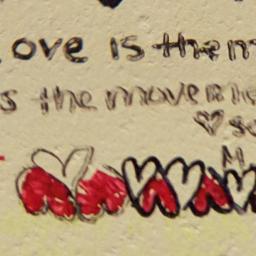 ove is them
s the moveme
so